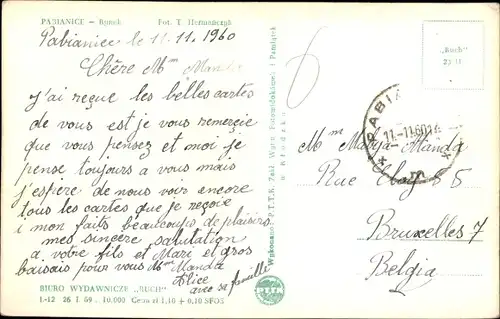 PABIANICE – Rynek Fot. T. Hermańczyk
Pabianice le 11.11.1960
Chère Mᵐ Manda
J'ai reçue les belles cartes
de vous est je vous remerçie
que vous pensez et moi je
pense toujours a vous mais
j'espère de nous voir encore
tous les cartes que je reçoie
i mon faits beaucoups de plaisirs
mes sincère salutation
a votre fils et Mari et gros
baisais pour vous Mᵐ Manda
Alice
avec sa famille
BIURO WYDAWNICZE „RUCH"
I-12 26 I 59 10.000 Cena zł 1,10 + 0,10 SFOS
Wykonano P.T.T.K. Zakł. Wytw. Fotowidokówek i Pamiątek
w Kłodzko
PTTK
6
„Ruch"
PABIA
11.-11.60
Mᵐ Maryja Manda
Rue 8
Bruxelles 7
Belgia